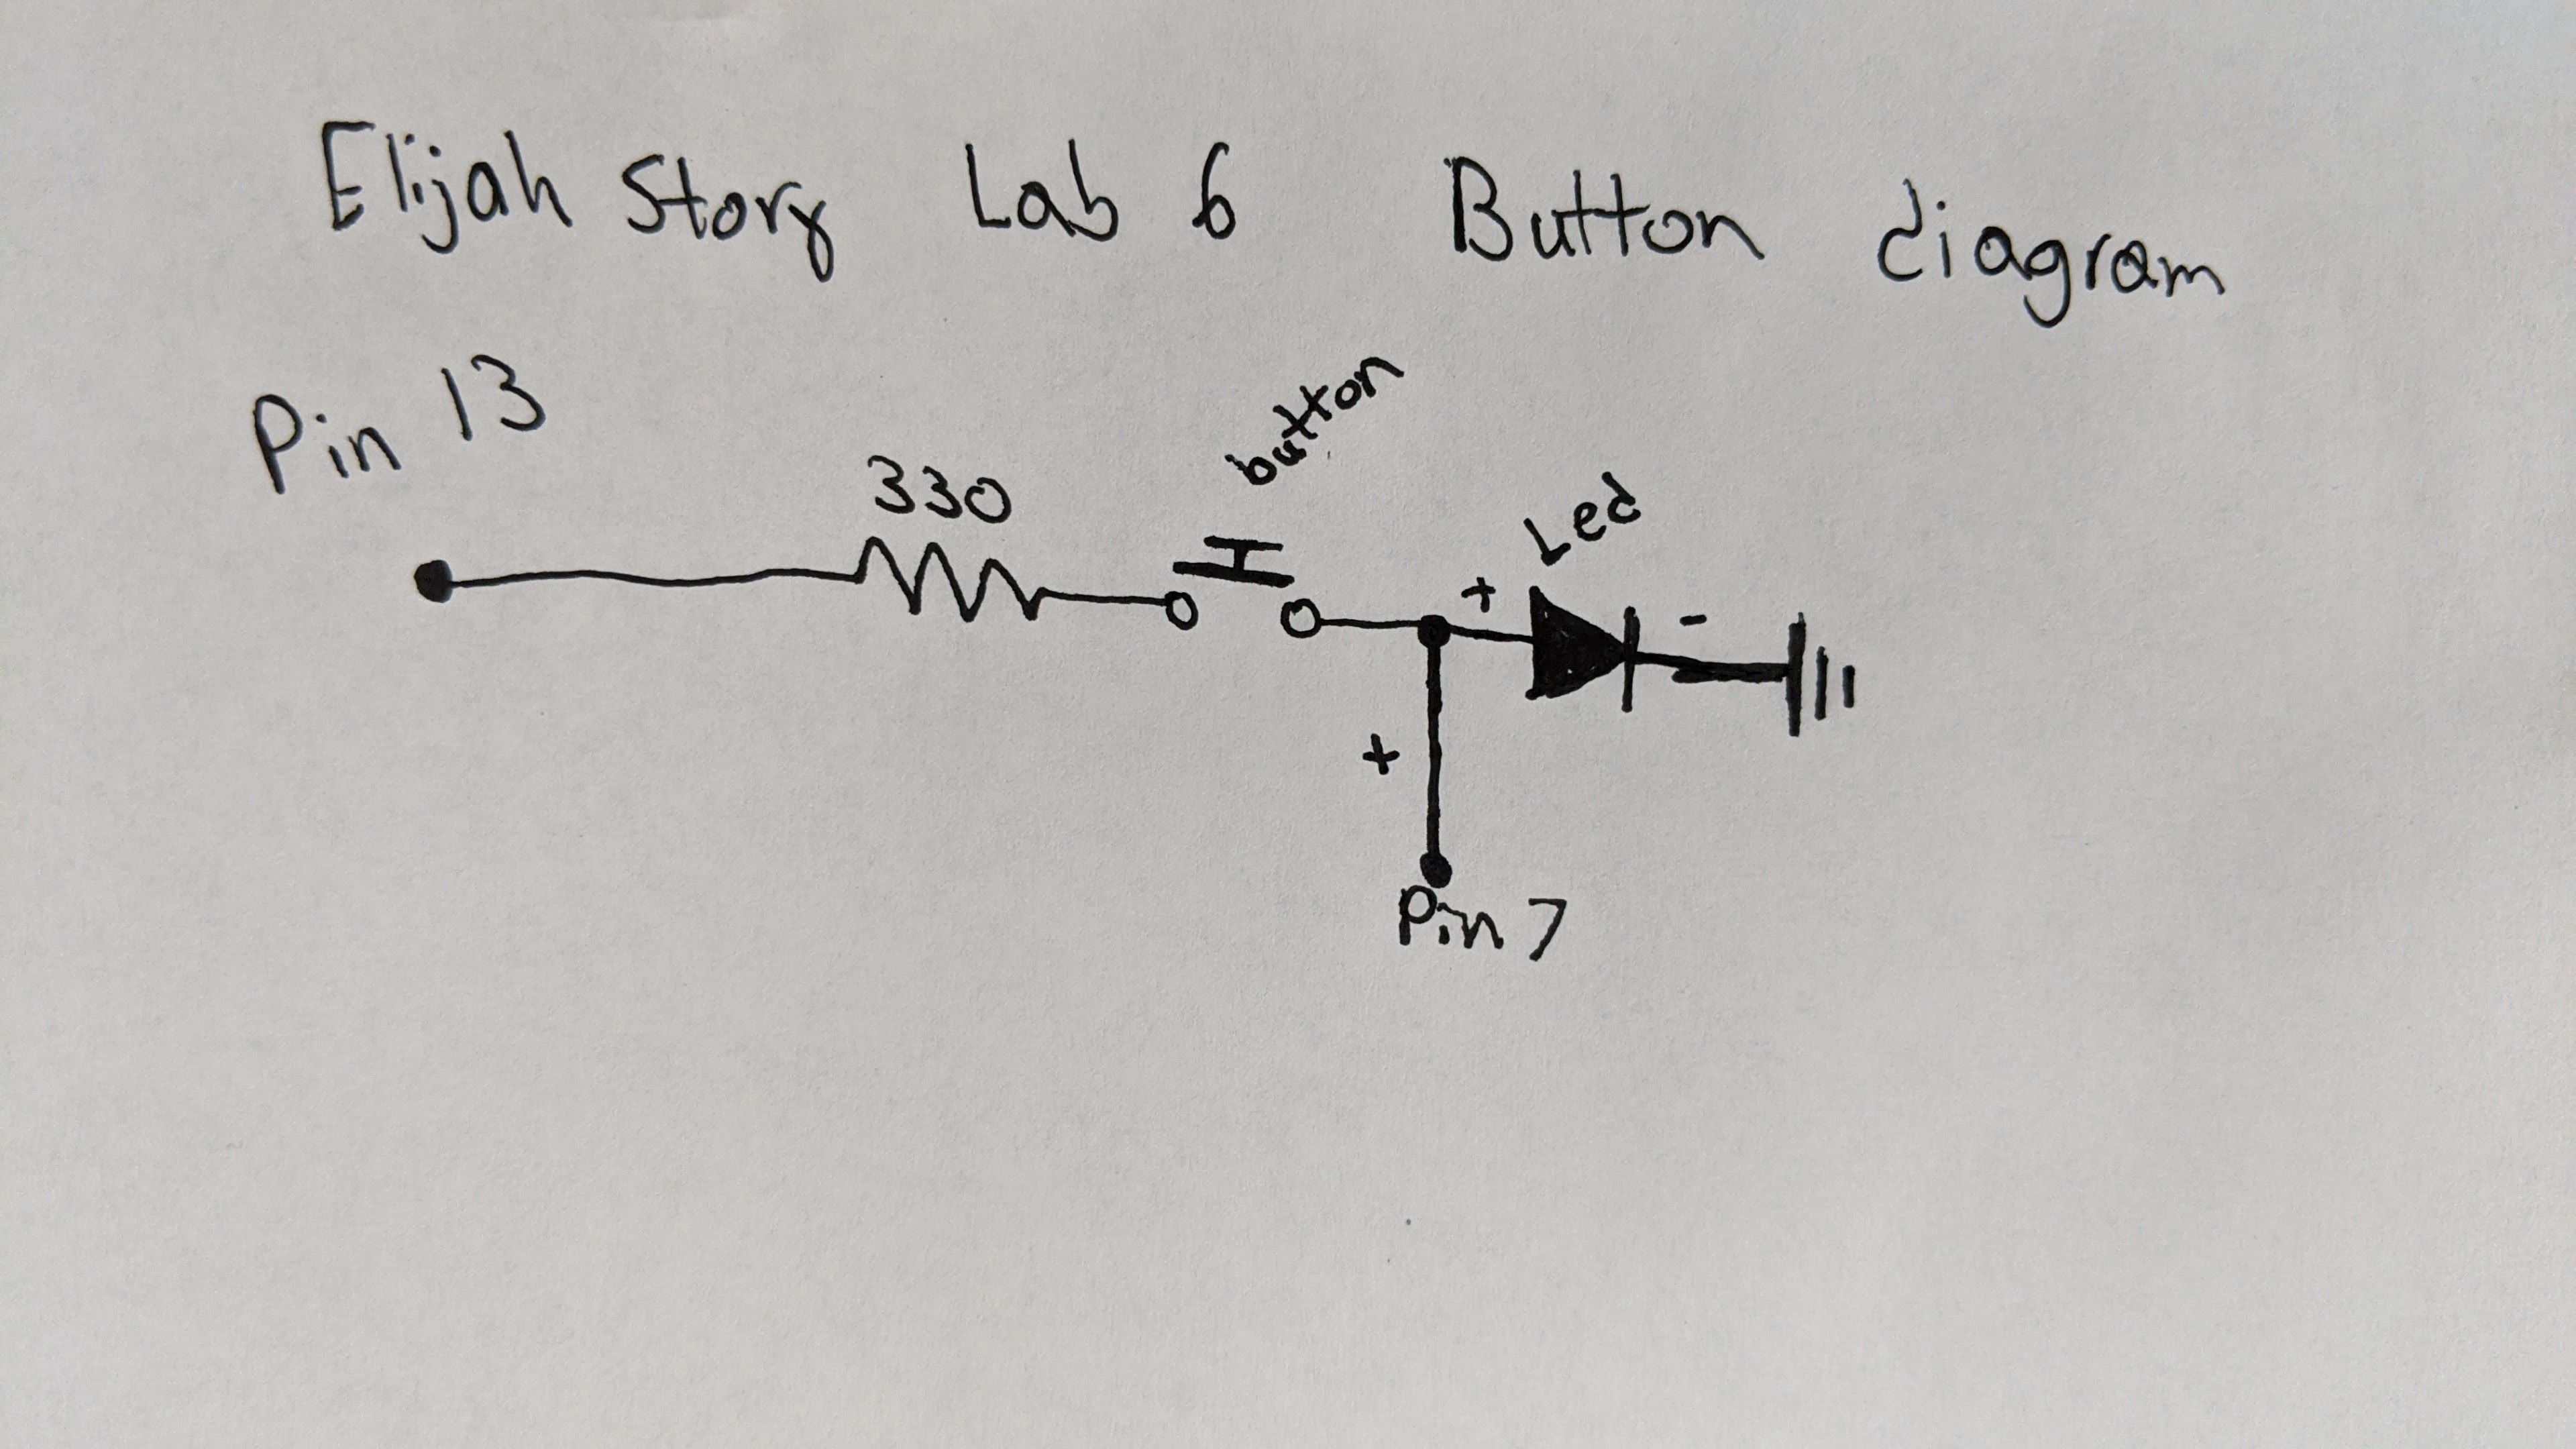 Elijah Story Lab 6 Button diagram
Pin 13
330
button
Led
+ -
+
Pin 7